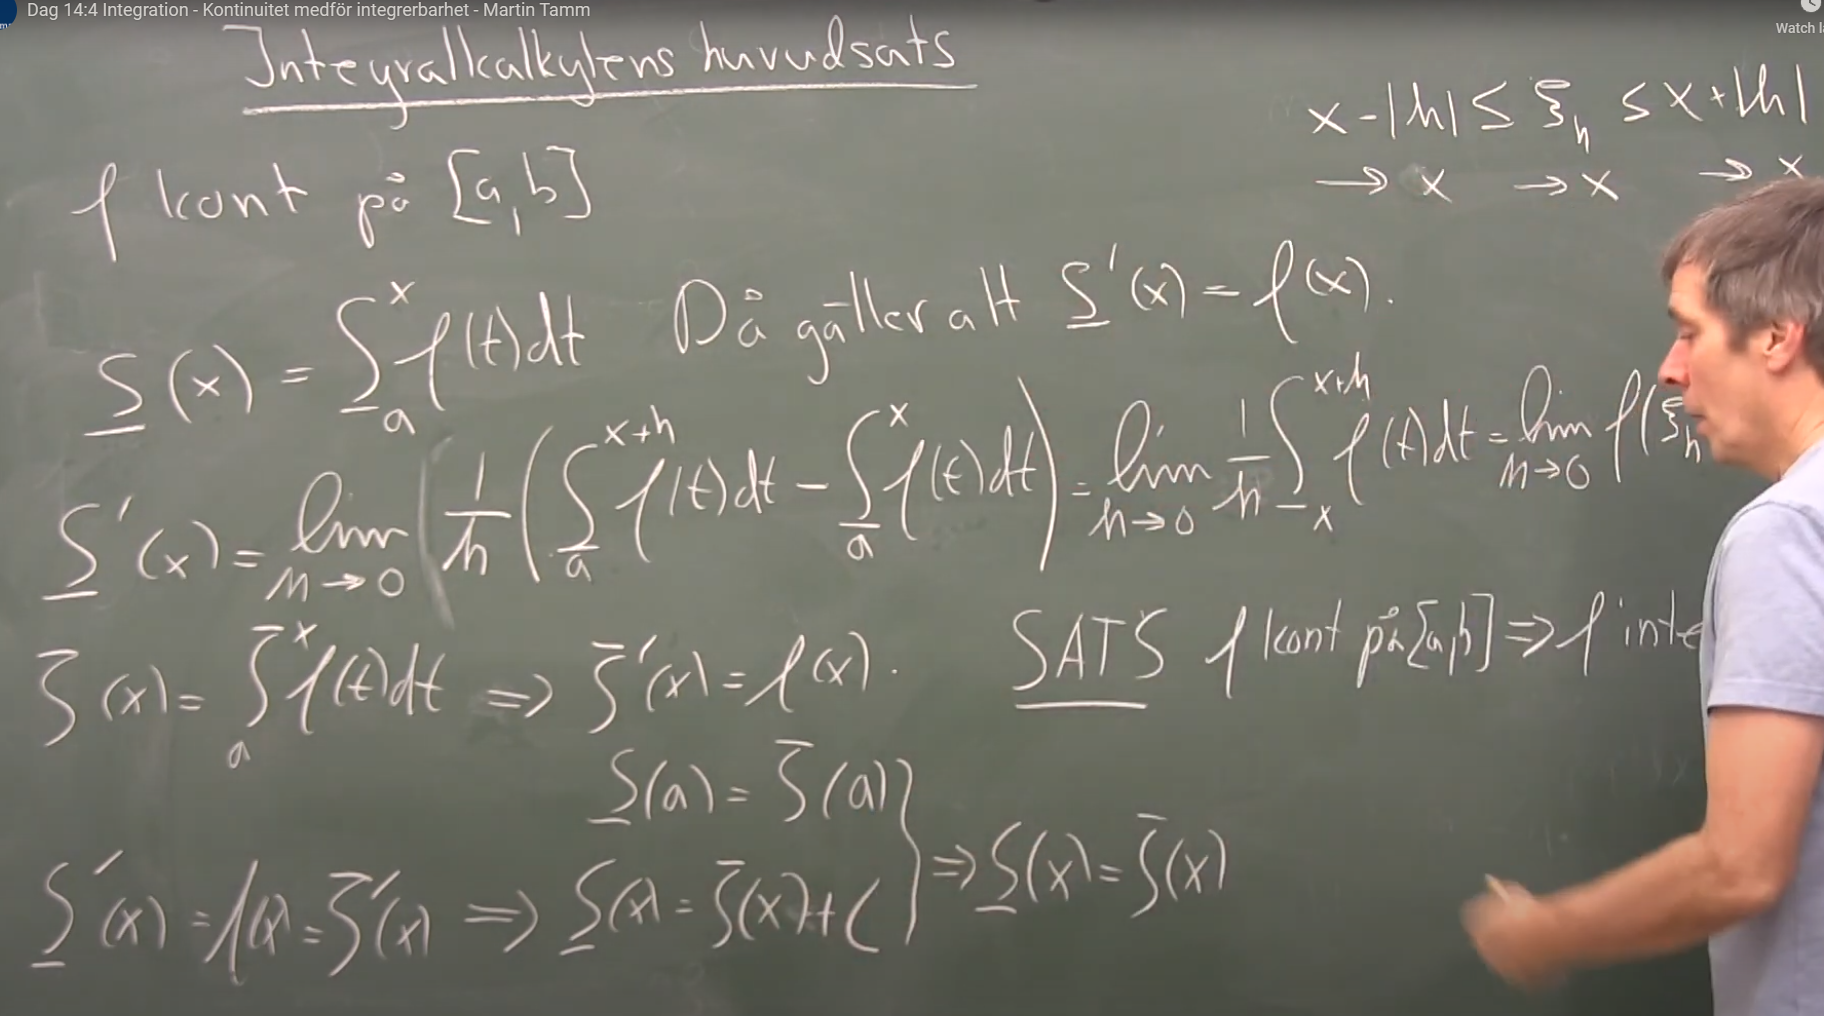 Dag 14:4 Integration - Kontinuitet medför integrerbarhet - Martin Tamm
Watch
Integralkalkylens huvudsats
x-|h| ≤ ξₕ ≤ x+|h|
→ x → x → x
f kont på [a,b]
S̲(x) = ∫̲ₐˣ f(t)dt Då gäller att S̲'(x) = f(x).
S̲'(x) = lim h→0 (1/h (∫̲ₐˣ⁺ʰ f(t)dt - ∫̲ₐˣ f(t)dt) = lim h→0 1/h ∫̲ₓˣ⁺ʰ f(t)dt = lim h→0 f(ξₕ
S̅(x) = ∫̅ₐˣ f(t)dt ⇒ S̅'(x) = f(x).
SATS f kont på [a,b] ⇒ f inte
S̲(a) = S̅(a)}
S̲'(x) = f(x) = S̅'(x) ⇒ S̲(x) = S̅(x) + C } ⇒ S̲(x) = S̅(x)